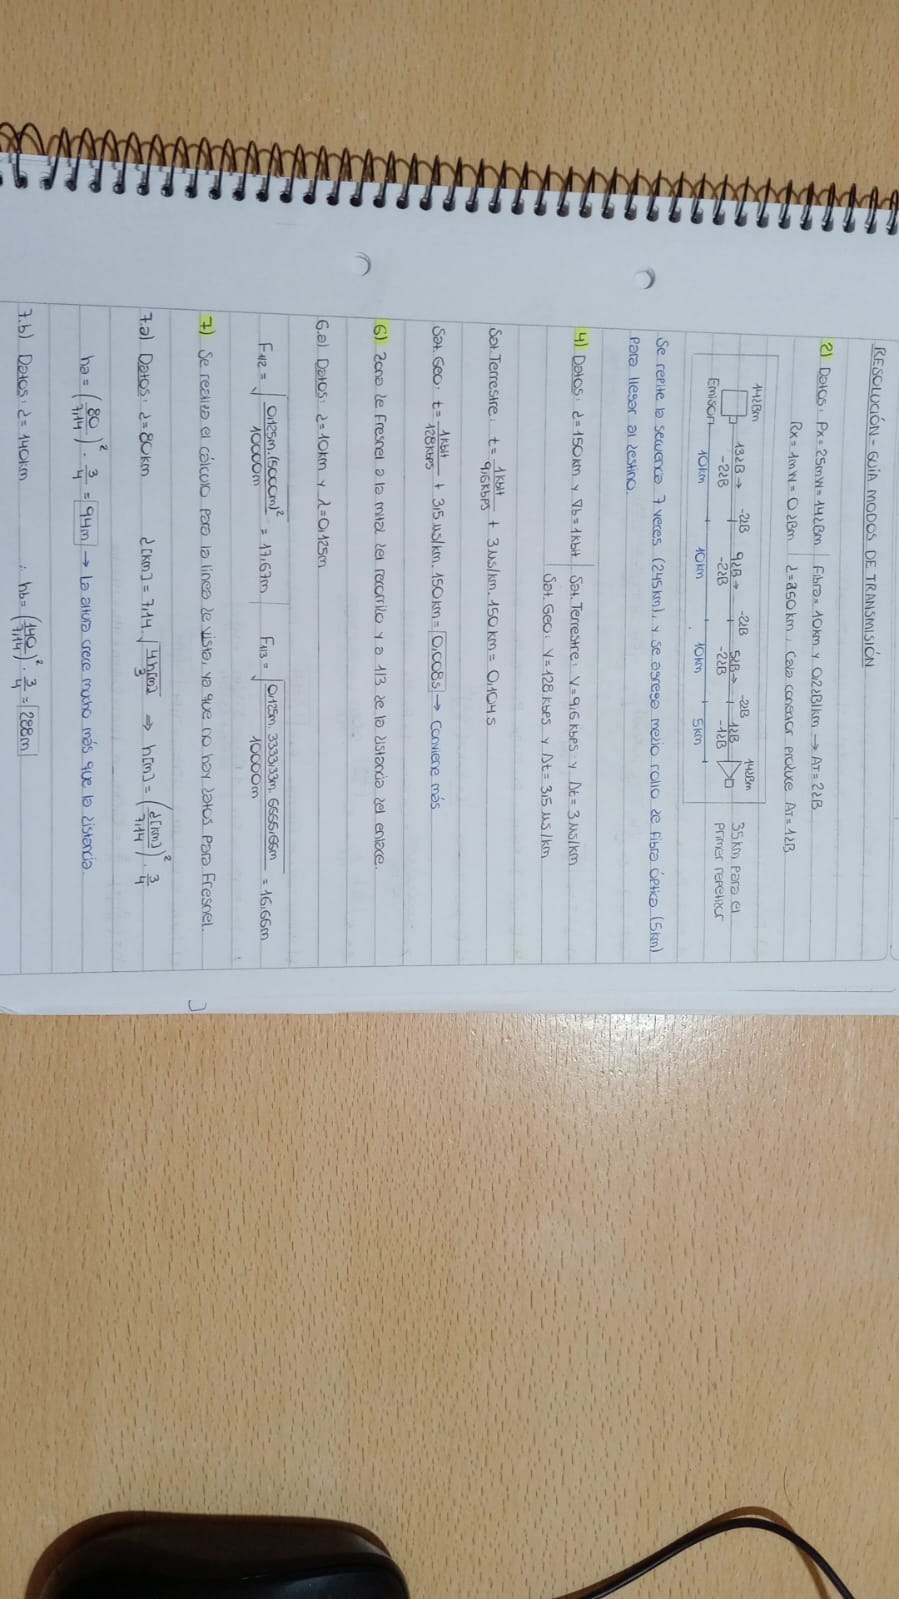 RESOLUCIÓN - GUÍA MODOS DE TRANSMISIÓN
2) Datos: Px = 25mW = 14dBm | Fibra = 10km y 0,2dB/km → AT = 2dB
Rx = 1mW = 0dBm | d = 250km, Cada conector produce AT = 1dB
14dBm
Emisor
13dB →
-2dB
10km
-2dB
9dB →
-2dB
10km
-2dB
5dB →
-2dB
10km
-2dB
1dB
-1dB
5km
14dBm
35km para el
primer repetidor
Se repite la secuencia 7 veces (245km), y se agrega medio rollo de fibra óptica (5km)
para llegar al destino.
4) Datos: d = 150km y Vb = 1kbit | Sat. Terrestre: V = 9,6 kbps y Δt = 3 µs/km
Sat. Geo: V = 128 kbps y Δt = 3,5 µs/km
Sat. Terrestre: t = 1kbit / 9,6kbps + 3 µs/km . 150 km = 0,104 s
Sat. Geo: t = 1kbit / 128kbps + 3,5 µs/km . 150km = 0,008s → Conviene más
6) Zona de Fresnel a la mitad del recorrido y a 1/3 de la distancia del enlace.
6.a) Datos: d = 10km y λ = 0,125m
F1/2 = √(0,125m . (5000m)² / 10000m) = 17,67m | F1/3 = √(0,125m . 3333,33m . 6666,66m / 10000m) = 16,66m
7) Se realiza el cálculo para la línea de vista, ya que no hay datos para Fresnel.
7.a) Datos: d = 80km d[km] = 7,14 . √(4h[m] / 3) ⇒ h[m] = (d[km] / 7,14)² . 3/4
ha = (80 / 7,14)² . 3/4 = 94m → La altura crece mucho más que la distancia.
7.b) Datos: d = 140km : hb = (140 / 7,14)² . 3/4 = 288m